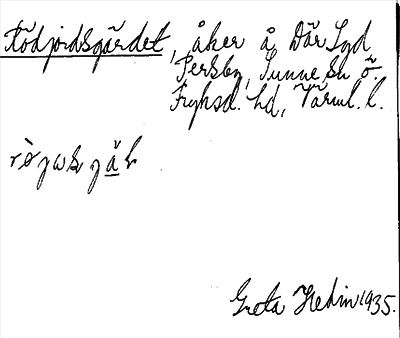 Rödjordsgärdet, åker å Där Lgd
Persby, Sunne sn ö.
Fryksd. hd, Värml. l.
Greta Hedin 1935.